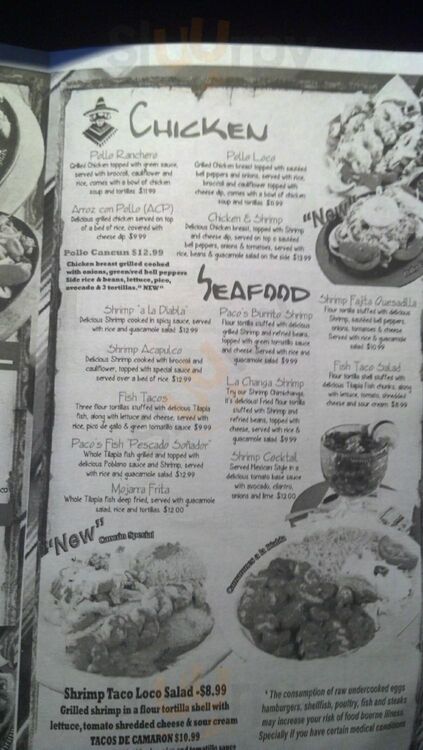 CHICKEN
Pollo Ranchero
Grilled Chicken topped with green sauce,
served with broccoli, cauliflower and
rice, comes with a bowl of chicken
soup and tortillas $11.99
Arroz con Pollo (ACP)
Delicious grilled chicken served on top
of a bed of rice, covered with
cheese dip $9.99
Pollo Cancun $12.99
Chicken breast grilled cooked
with onions, green/red bell peppers
Side rice & beans, lettuce, pico,
avocado & 3 tortillas." NEW"
Pollo Loco
Grilled Chicken breast topped with sautéed
bell peppers and onions, served with rice,
broccoli and cauliflower topped with
cheese dip, comes with a bowl of chicken
soup and tortillas
Chicken & Shrimp
Delicious Chicken breast, topped with Shrimp
and cheese dip, served on top o sautéed
bell peppers, onions & tomatoes, served with
rice, beans & guacamole salad on the side $13.99
"New"
SEAFOOD
Shrimp "a la Diabla"
Delicious Shrimp cooked in spicy sauce, served
with rice and guacamole salad $12.99
Shrimp Acapulco
Delicious Shrimp cooked with broccoli and
cauliflower, topped with special sauce and
served over a bed of rice $12.99
Fish Tacos
Three flour tortillas stuffed with delicious Tilapia
fish, along with lettuce and cheese, served with
rice, pico de gallo & green tomatillo sauce $9.99
Paco's Fish "Pescado Soñador"
Whole Tilapia fish grilled and topped with
delicious Poblano sauce and Shrimp, served
with rice and guacamole salad $12.99
Mojarra Frita
Whole Tilapia fish deep fried, served with guacamole
salad, rice and tortillas $12.00
Paco's Burrito Shrimp
Flour tortilla stuffed with delicious
grilled Shrimp and refried beans,
topped with green tomatillo sauce
and cheese. Served with rice and
guacamole salad $9.99
La Changa Shrimp
Try our Shrimp Chimichanga,
it's delicious! Fried flour tortilla
stuffed with Shrimp and
refried beans, topped with
cheese, served with rice &
guacamole salad $9.99
Shrimp Cocktail
Served Mexican Style in a
delicious tomato base sauce
with avocado, cilantro,
onions and lime $12.00
Shrimp Fajita Quesadilla
Flour tortilla stuffed with delicious
Shrimp, sautéed bell peppers,
onions, tomatoes & cheese.
Served with rice & guacamole
salad $10.99
Fish Taco Salad
Flour tortilla shell stuffed with
delicious Tilapia fish chunks, along
with lettuce, tomato, shredded
cheese and sour cream $8.99
"New"
Cancún Special
Camarones a la Diabla
Shrimp Taco Loco Salad -$8.99
Grilled shrimp in a flour tortilla shell with
lettuce,tomato shredded cheese & sour cream
TACOS DE CAMARON $10.99
* The consumption of raw undercooked eggs
hamburgers, shellfish, poultry, fish and steaks
may increase your risk of food bourne illness.
Specially if you have certain medical conditions